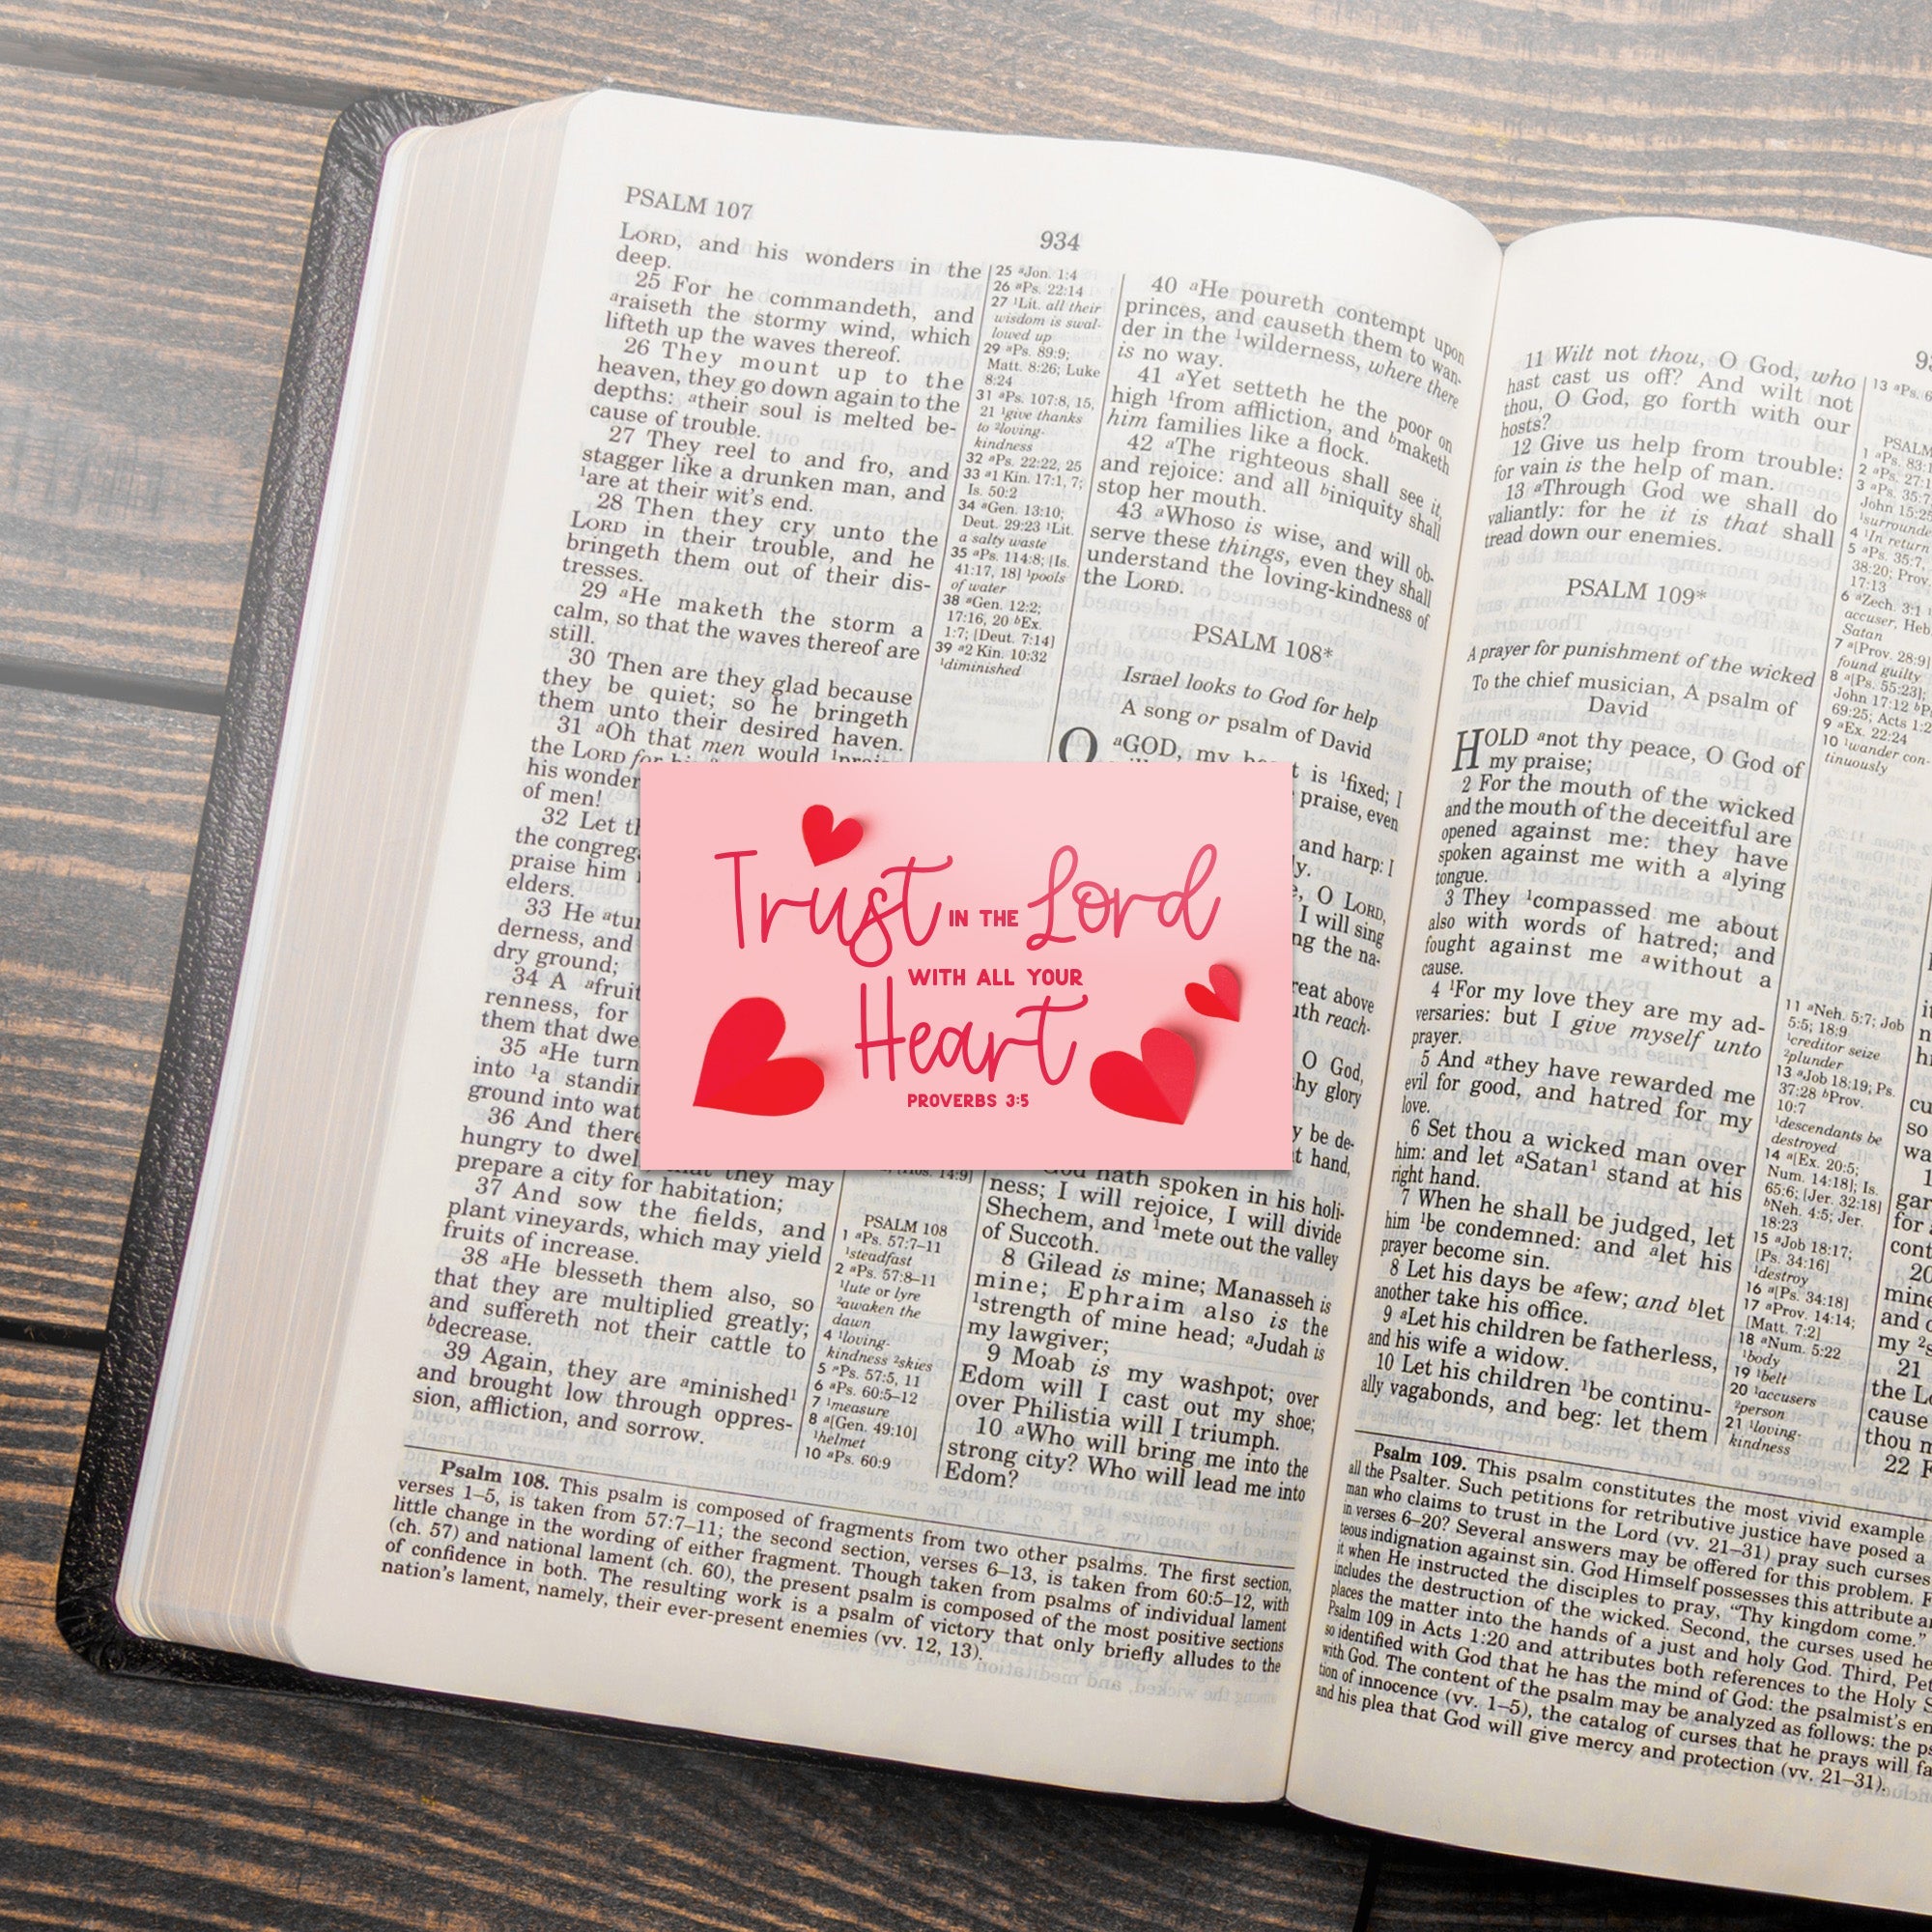 PSALM 107
934
LORD, and his wonders in the
deep.
25 For he commandeth, and
ᵃraiseth the stormy wind, which
lifteth up the waves thereof.
26 They mount up to the
heaven, they go down again to the
depths: ᵃtheir soul is melted be-
cause of trouble.
27 They reel to and fro, and
stagger like a drunken man, and
¹are at their wit's end.
28 Then they cry unto the
LORD in their trouble, and he
bringeth them out of their dis-
tresses.
29 ᵃHe maketh the storm a
calm, so that the waves thereof are
still.
30 Then are they glad because
they be quiet; so he bringeth
them unto their desired haven.
31 ᵃOh that men would
the LORD for
his
of men!
32 Let
the
praise him
elders.
33 He
derness, and
dry ground;
34 A
renness, for
them that
35 ᵃHe
into ¹a
ground into
36 And
hungry to that they may
prepare a city for habitation;
37 And sow the fields, and
plant vineyards, which may yield
fruits of increase.
38 ᵃHe blesseth them also, so
that they are multiplied greatly;
and suffereth not their cattle to
ᵇdecrease.
39 Again, they are ᵃminished¹
and brought low through oppres-
sion, affliction, and sorrow.
25 ᵃJon. 1:4
26 ᵃPs. 22:14
27 ¹Lit. all their
wisdom is swal-
lowed up
29 ᵃPs. 89:9;
Matt. 8:26; Luke
8:24
31 ᵃPs. 107:8, 15,
21 ¹give thanks
to ²loving-
kindness
32 ᵃPs. 22:22, 25
33 ᵃ1 Kin. 17:1, 7;
Is. 50:2
34 ᵃGen. 13:10;
Deut. 29:23 ¹Lit.
a salty waste
35 ᵃPs. 114:8; [Is.
41:17, 18] ¹pools
of water
38 ᵃGen. 12:2;
17:16, 20 ᵇEx.
1:7; [Deut. 7:14]
39 ᵃ2 Kin. 10:32
¹diminished
14:9]
PSALM 108
1 ᵃPs. 57:7–11
¹steadfast
2 ᵃPs. 57:8–11
¹lute or lyre
²awaken the
dawn
4 ¹loving-
kindness ²skies
5 ᵃPs. 57:5, 11
6 ᵃPs. 60:5–12
7 ¹measure
8 ᵃ[Gen. 49:10]
¹helmet
10 ᵃPs. 60:9
40 ᵃHe poureth contempt upon
princes, and causeth them to wan-
der in the ¹wilderness, where there
is no way.
41 ᵃYet setteth he the poor on
high ¹from affliction, and ᵇmaketh
him families like a flock.
42 ᵃThe righteous shall see it,
and rejoice: and all ᵇiniquity shall
stop her mouth.
43 ᵃWhoso is wise, and will ob-
serve these things, even they shall
understand the loving-kindness of
the LORD.
PSALM 108*
Israel looks to God for help
A song or psalm of David
O ᵃGOD, my is ¹fixed; I
praise, even
and harp: I
O LORD,
I will sing
the na-
above
reach-
O God,
glory
be de-
hand,
God hath spoken in his holi-
ness; I will rejoice, I will divide
Shechem, and ¹mete out the valley
of Succoth.
8 Gilead is mine; Manasseh is
mine; Ephraim also is the
¹strength of mine head; ᵃJudah is
my lawgiver;
9 Moab is my washpot; over
Edom will I cast out my shoe;
over Philistia will I triumph.
10 ᵃWho will bring me into the
strong city? Who will lead me into
Edom?
Trust IN THE Lord
WITH ALL YOUR
Heart
PROVERBS 3:5
Psalm 108. This psalm is composed of fragments from two other psalms. The first section,
verses 1–5, is taken from 57:7–11; the second section, verses 6–13, is taken from 60:5–12, with
little change in the wording of either fragment. Though taken from psalms of individual lament
(ch. 57) and national lament (ch. 60), the present psalm is composed of the most positive sections
of confidence in both. The resulting work is a psalm of victory that only briefly alludes to the
nation's lament, namely, their ever-present enemies (vv. 12, 13).
11 Wilt not thou, O God, who
hast cast us off? And wilt not
thou, O God, go forth with our
hosts?
12 Give us help from trouble:
for vain is the help of man.
13 ᵃThrough God we shall do
valiantly: for he it is that shall
tread down our enemies.
PSALM 109*
A prayer for punishment of the wicked
To the chief musician, A psalm of
David
HOLD ᵃnot thy peace, O God of
my praise;
2 For the mouth of the wicked
and the mouth of the deceitful are
opened against me: they have
spoken against me with a ᵃlying
tongue.
3 They ¹compassed me about
also with words of hatred; and
fought against me ᵃwithout a
cause.
4 ¹For my love they are my ad-
versaries: but I give myself unto
prayer.
5 And ᵃthey have rewarded me
evil for good, and hatred for my
love.
6 Set thou a wicked man over
him: and let ᵃSatan¹ stand at his
right hand.
7 When he shall be judged, let
him ¹be condemned: and ᵃlet his
prayer become sin.
8 Let his days be ᵃfew; and ᵇlet
another take his office.
9 ᵃLet his children be fatherless,
and his wife a widow.
10 Let his children ¹be continu-
ally vagabonds, and beg: let them
13 ᵃPs.
PSALM
1 ᵃPs.
2 ᵃPs.
3 ᵃPs.
John
4 ¹In return
5 ᵃPs. 35:7,
38:20; Prov.
17:13
6 ᵃZech. 3:1
accuser, Heb
Satan
7 ᵃ[Prov. 28:9]
found guilty
8 ᵃ[Ps. 55:23];
John 17:12
69:25; Acts
9 ᵃEx. 22:24
10 ¹wander con-
tinuously
11 ᵃNeh. 5:7; Job
5:5; 18:9
¹creditor seize
²plunder
13 ᵃJob 18:19; Ps.
37:28 ᵇProv.
10:7
¹descendants be
destroyed
14 ᵃ[Ex. 20:5;
Num. 14:18]; Is.
65:6; [Jer. 32:18]
ᵇNeh. 4:5; Jer.
18:23
15 ᵃJob 18:17;
[Ps. 34:16]
¹destroy
16 ᵃ[Ps. 34:18]
17 ᵃProv. 14:14;
[Matt. 7:2]
18 ᵃNum. 5:22
¹body
19 ¹belt
20 ¹accusers
²person
21 ¹loving-
kindness
for
mine
and
my
21
the
cause
thou
22
Psalm 109. This psalm constitutes the most vivid example
all the Psalter. Such petitions for retributive justice have posed a
man who claims to trust in the Lord (vv. 21–31) pray such curses
in verses 6–20? Several answers may be offered for this problem.
teous indignation against sin. God Himself possesses this attribute
it when He instructed the disciples to pray, "Thy kingdom come."
includes the destruction of the wicked. Second, the curses used
places the matter into the hands of a just and holy God. Third,
Psalm 109 in Acts 1:20 and attributes both references to the Holy
so identified with God that he has the mind of God: the psalmist's
with God. The content of the psalm may be analyzed as follows: the
tion of innocence (vv. 1–5), the catalog of curses that he prays will
and his plea that God will give mercy and protection (vv. 21–31).